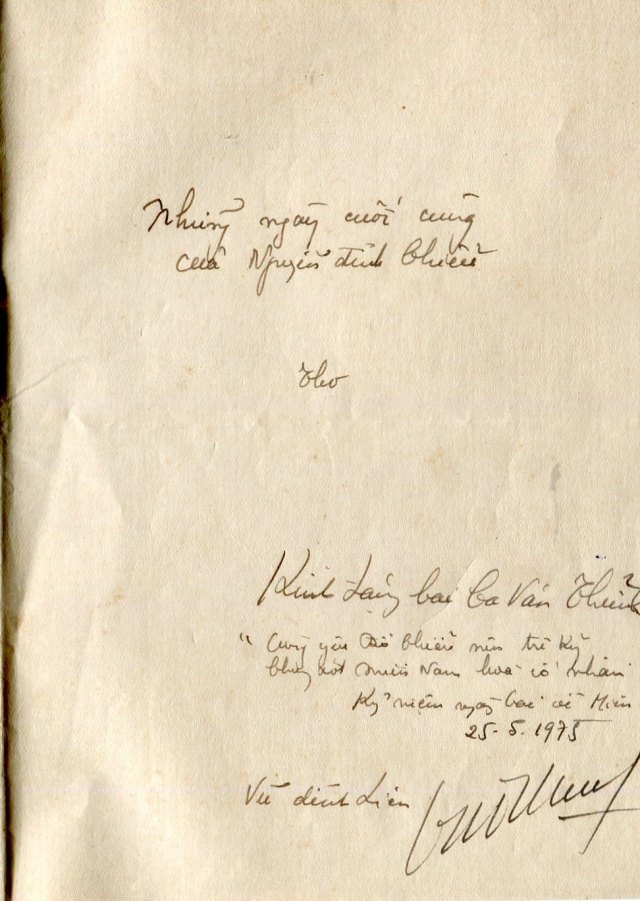 Những ngày cuối cùng
của Nguyễn đình Chiểu
Thơ
Kính tặng bác Ca Văn Thỉnh
"Cùng yêu Đồ Chiểu nên tri kỷ
Chung xót miền Nam hoá cố nhân
Kỷ niệm ngày bác về Miền
25-5-1975
Vũ đình Liên